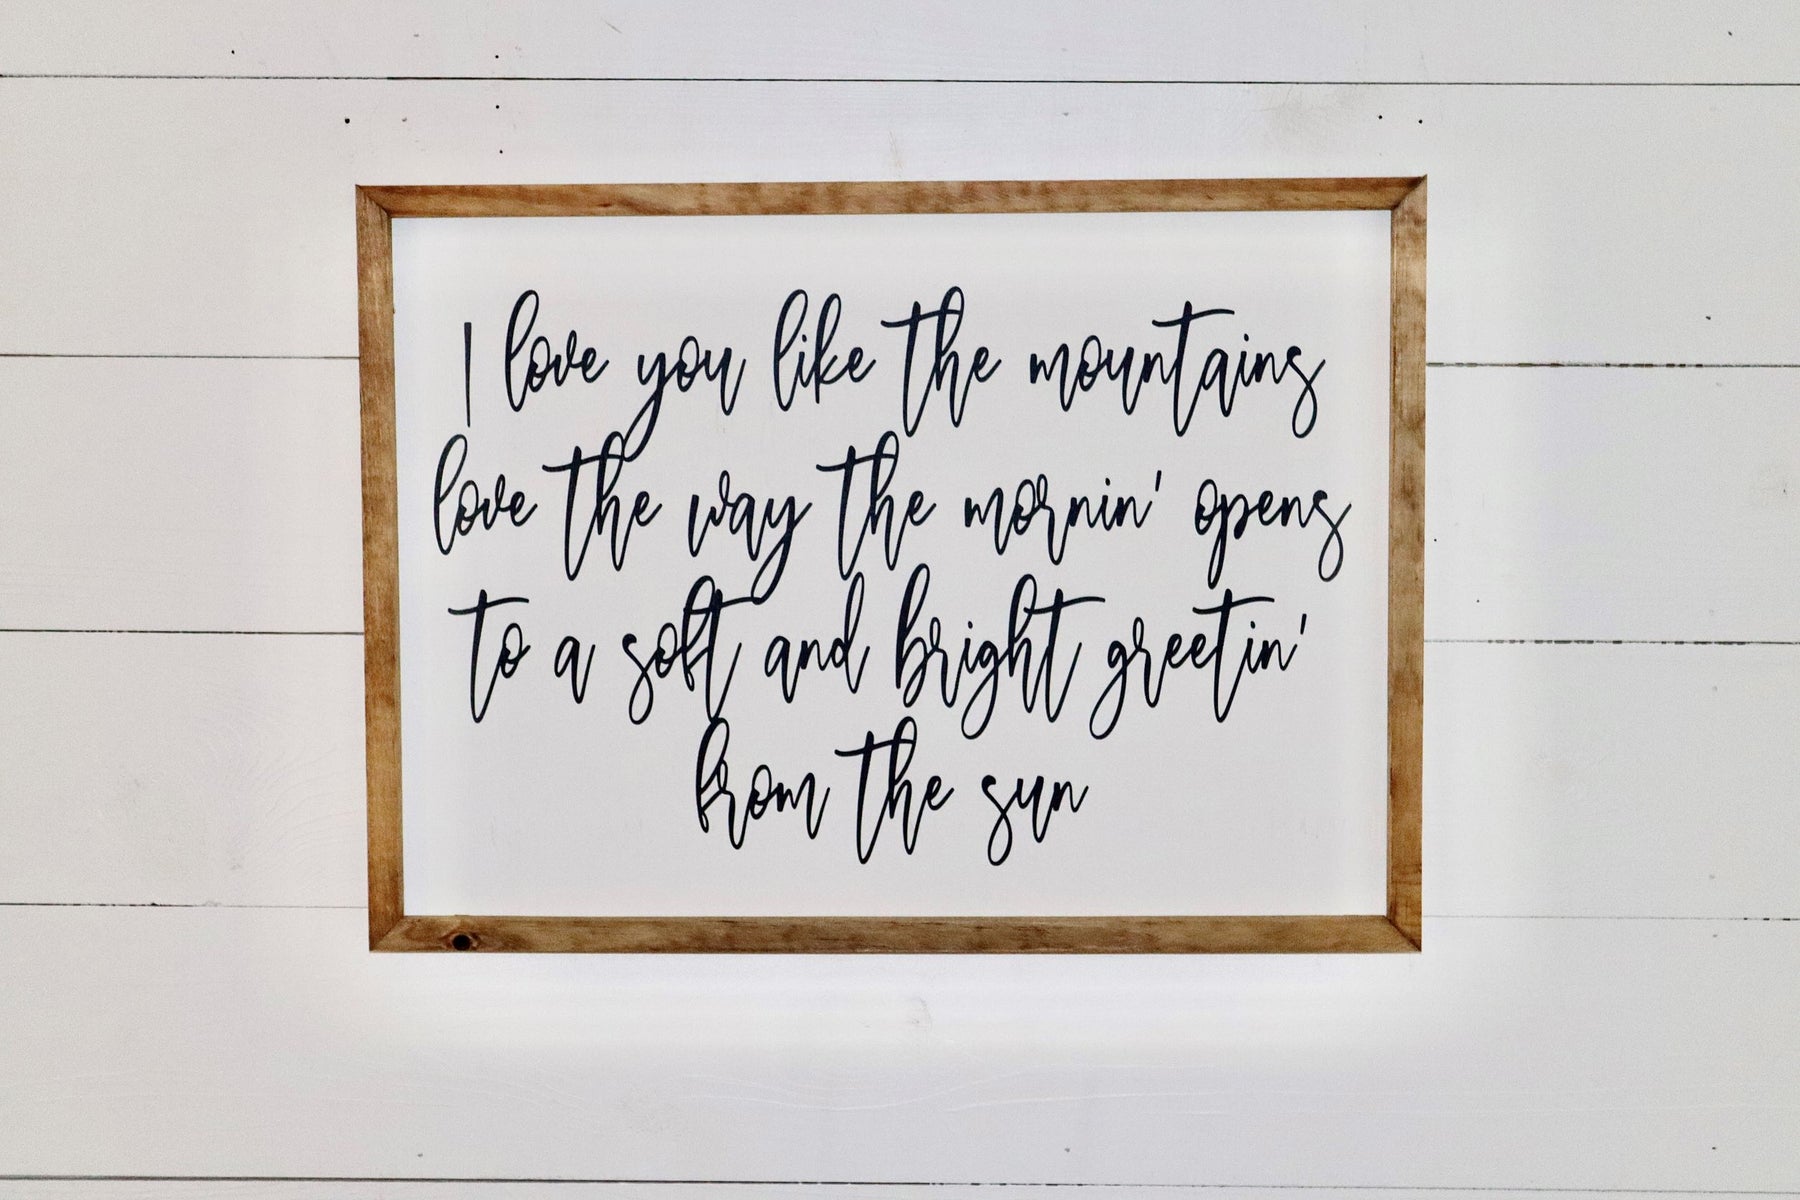 I love you like the mountains
love the way the mornin' opens
to a soft and bright greetin'
from the sun